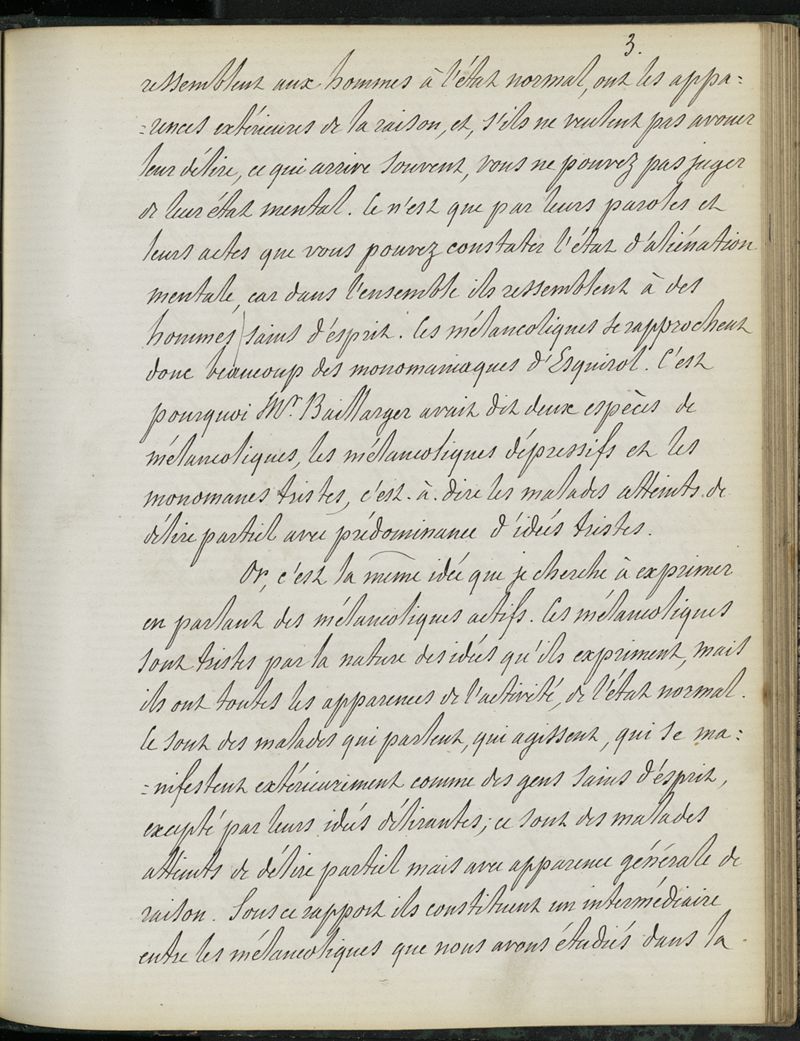 3.
ressemblent aux hommes à l'état normal, ont les appa=
=rences extérieures de la raison, et, s'ils ne veulent pas avouer
leur délire, ce qui arrive souvent, vous ne pouvez pas juger
de leur état mental. Ce n'est que par leurs paroles et
leurs actes que vous pouvez constater l'état d'aliénation
mentale, car dans l'ensemble ils ressemblent à des
hommes sains d'esprit. Ces mélancoliques se rapprochent
donc beaucoup des monomaniaques d'Esquirol. C'est
pourquoi Mr Baillarger avait dit deux espèces de
mélancoliques, les mélancoliques dépressifs et les
monomanes tristes, c'est-à-dire les malades atteints de
délire partiel avec prédominance d'idées tristes.
Or, c'est la même idée que je cherche à exprimer
en parlant des mélancoliques actifs. Ces mélancoliques
sont tristes par la nature des idées qu'ils expriment, mais
ils ont toutes les apparences de l'activité, de l'état normal.
Ce sont des malades qui parlent, qui agissent, qui se ma=
=nifestent extérieurement comme des gens sains d'esprit,
excepté par leurs idées délirantes; ce sont des malades
atteints de délire partiel mais avec apparence générale de
raison. Sous ce rapport ils constituent un intermédiaire
entre les mélancoliques que nous avons étudiés dans la